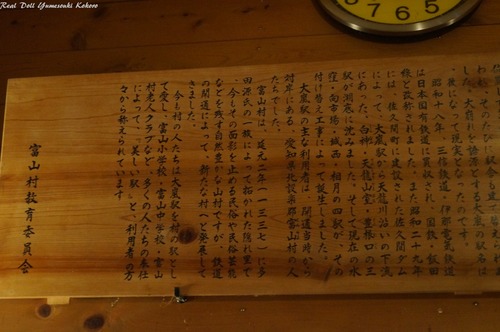 Real Doll Yumesouki Kokoro
7
6
5
4
した。大崩れを語源とする大嵐の駅名は
秋になって現在となったのです。
昭和十八年、三信鉄道・伊那電気鉄道
は日本国有鉄道に買収され、国鉄・飯田
線と改称されました。また昭和二十九年
には、佐久間町に建設された佐久間ダム
によって、大嵐駅から天竜川沿いの下流
にあった、白神・天竜山室・豊根口の三
駅が湖底に沈みました。そして現在の水
窪・向市場・城西・相月の四駅が、その
付け替え工事によって誕生しました。
大嵐駅の主な利用者は、開通当時から
対岸にある、愛知県北設楽郡富山村の人
たちでした。
富山村は、延元二年(一三三七)に多
田源氏の一族によって拓かれた隠れ里で
、今もその面影を止める民俗や民俗芸能
などを残す自然豊かな山村ですが、鉄道
の開通によって、新たな村へと発展して
きました。
今も村の人たちは大嵐駅を村の駅とし
て愛し、富山小学校・富山中学校・富山
村老人クラブなど、多くの人たちの奉仕
によって、"美しい駅"と、利用者の方
々から称えられています。
富山村教育委員会